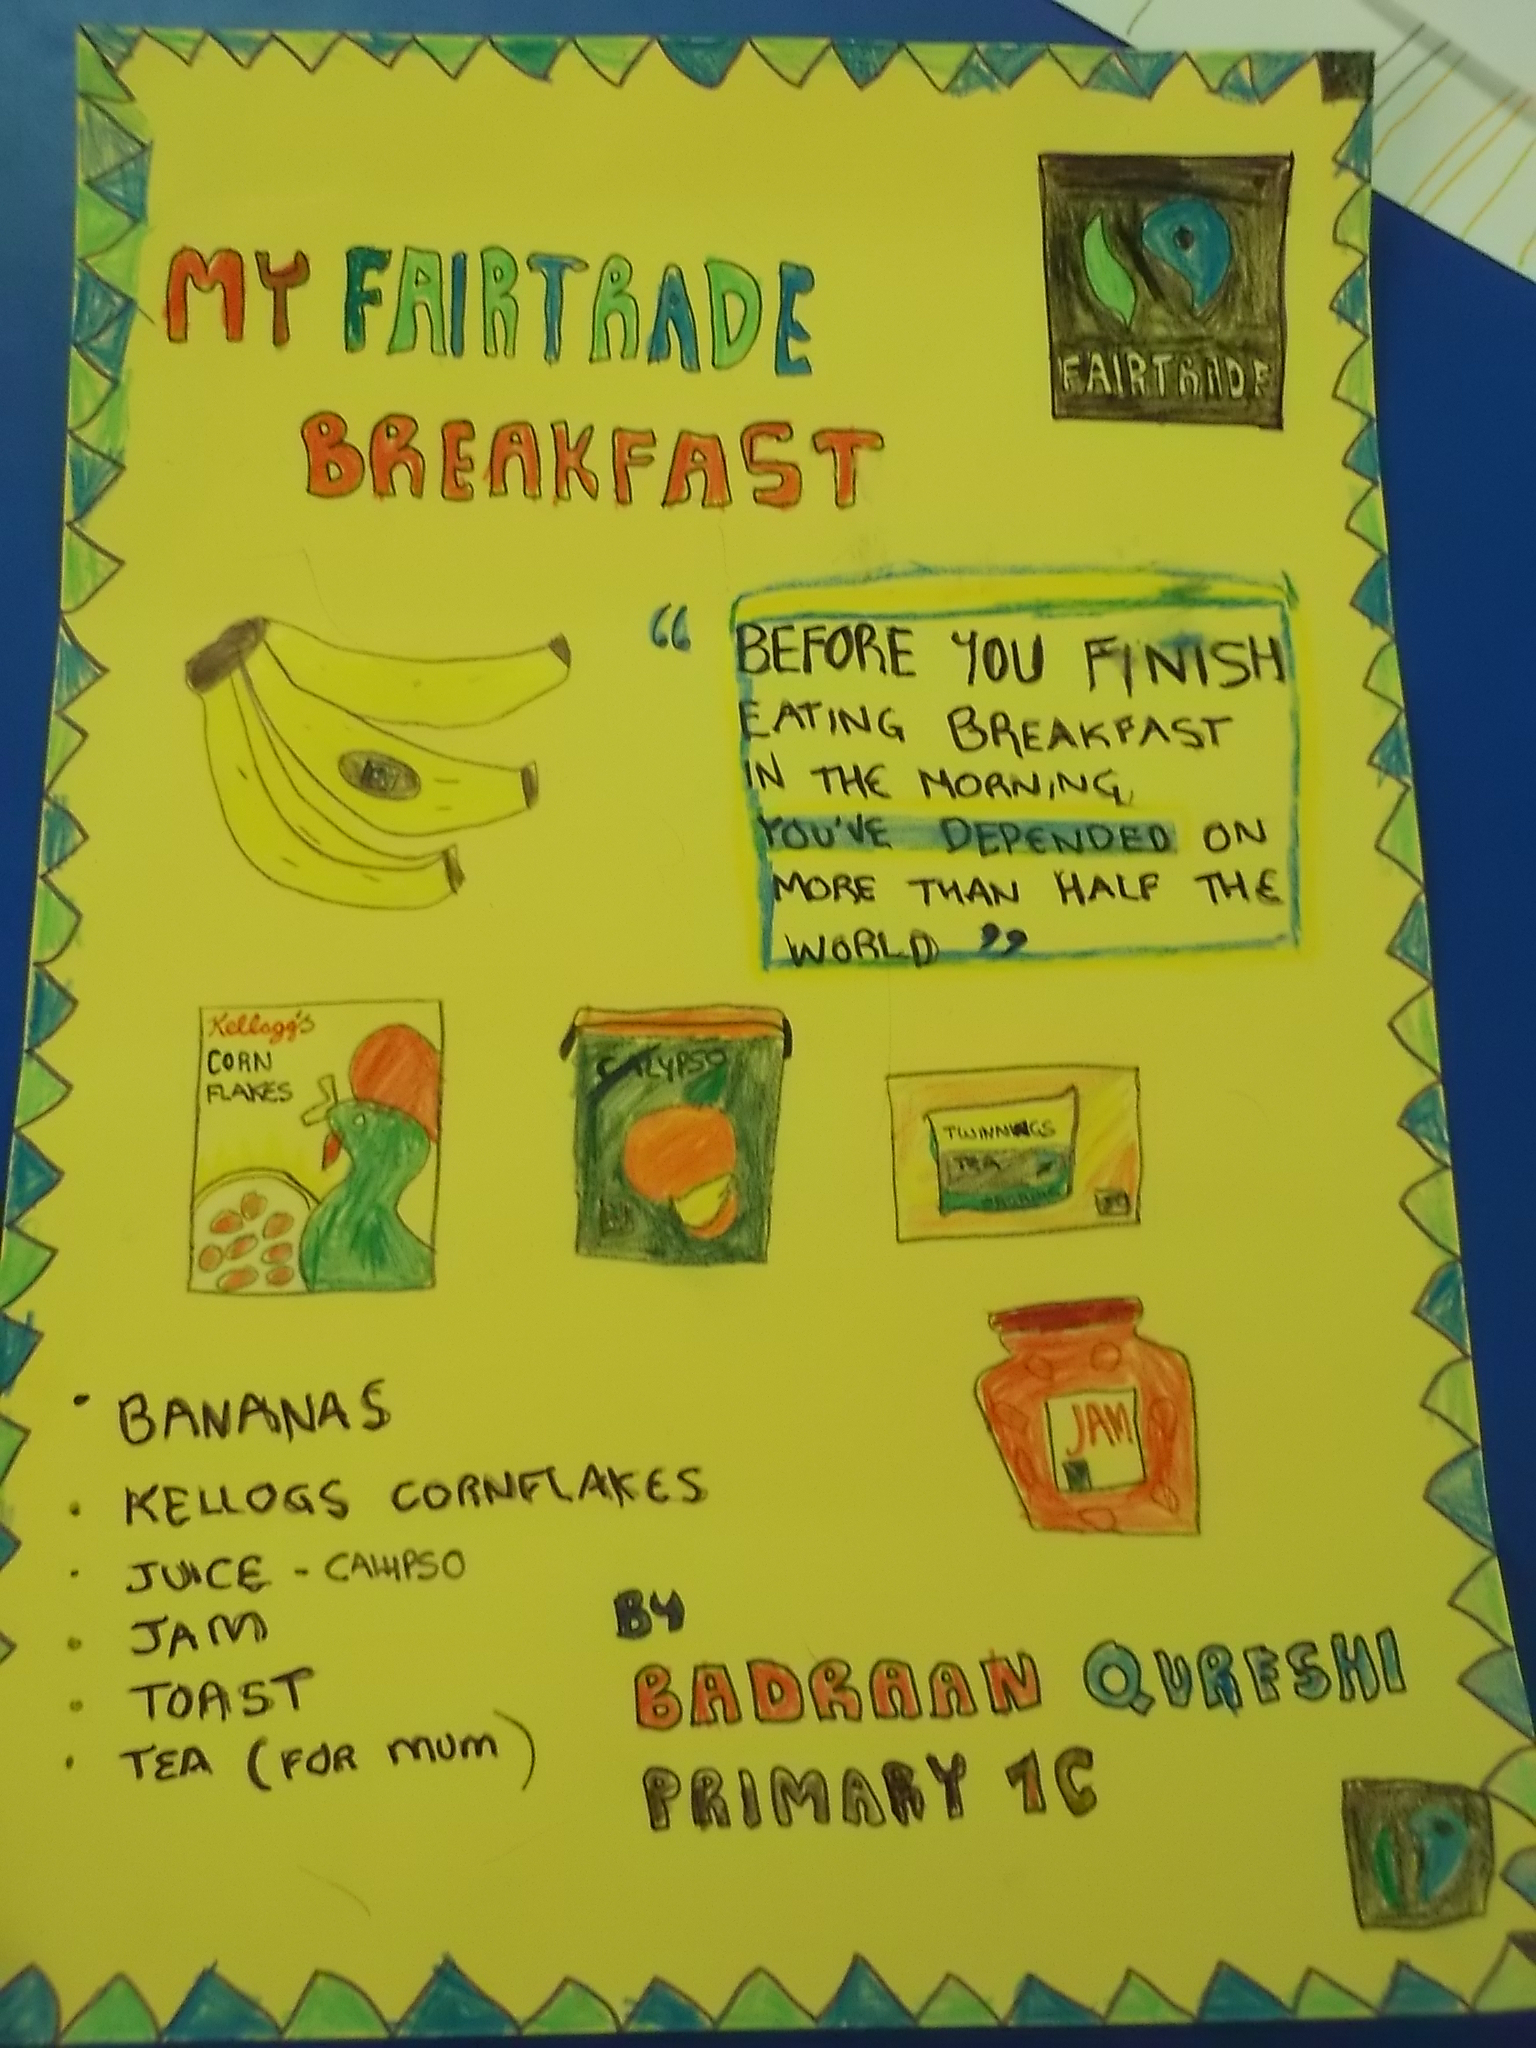 MY FAIRTRADE
BREAKFAST
FAIRTRADE
“ BEFORE YOU FINISH
EATING BREAKFAST
IN THE MORNING,
YOU'VE DEPENDED ON
MORE THAN HALF THE
WORLD ”
Kellogg's
CORN
FLAKES
CALYPSO
TWINNINGS
TEA
JAM
• BANANAS
• KELLOGS CORNFLAKES
• JUICE - CALYPSO
• JAM
• TOAST
• TEA (FOR MUM)
BY
BADRAAN QURESHI
PRIMARY 7C